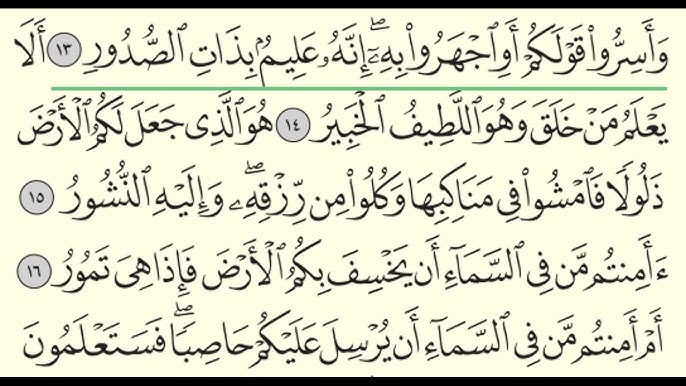 وَأَسِرُّوا۟ قَوْلَكُمْ أَوِ ٱجْهَرُوا۟ بِهِۦٓ ۖ إِنَّهُۥ عَلِيمٌۢ بِذَاتِ ٱلصُّدُورِ ١٣ أَلَا
يَعْلَمُ مَنْ خَلَقَ وَهُوَ ٱللَّطِيفُ ٱلْخَبِيرُ ١٤ هُوَ ٱلَّذِى جَعَلَ لَكُمُ ٱلْأَرْضَ
ذَلُولًا فَٱمْشُوا۟ فِى مَنَاكِبِهَا وَكُلُوا۟ مِن رِّزْقِهِۦ ۖ وَإِلَيْهِ ٱلنُّشُورُ ١٥
ءَأَمِنتُم مَّن فِى ٱلسَّمَآءِ أَن يَخْسِفَ بِكُمُ ٱلْأَرْضَ فَإِذَا هِىَ تَمُورُ ١٦
أَمْ أَمِنتُم مَّن فِى ٱلسَّمَآءِ أَن يُرْسِلَ عَلَيْكُمْ حَاصِبًا ۖ فَسَتَعْلَمُونَ